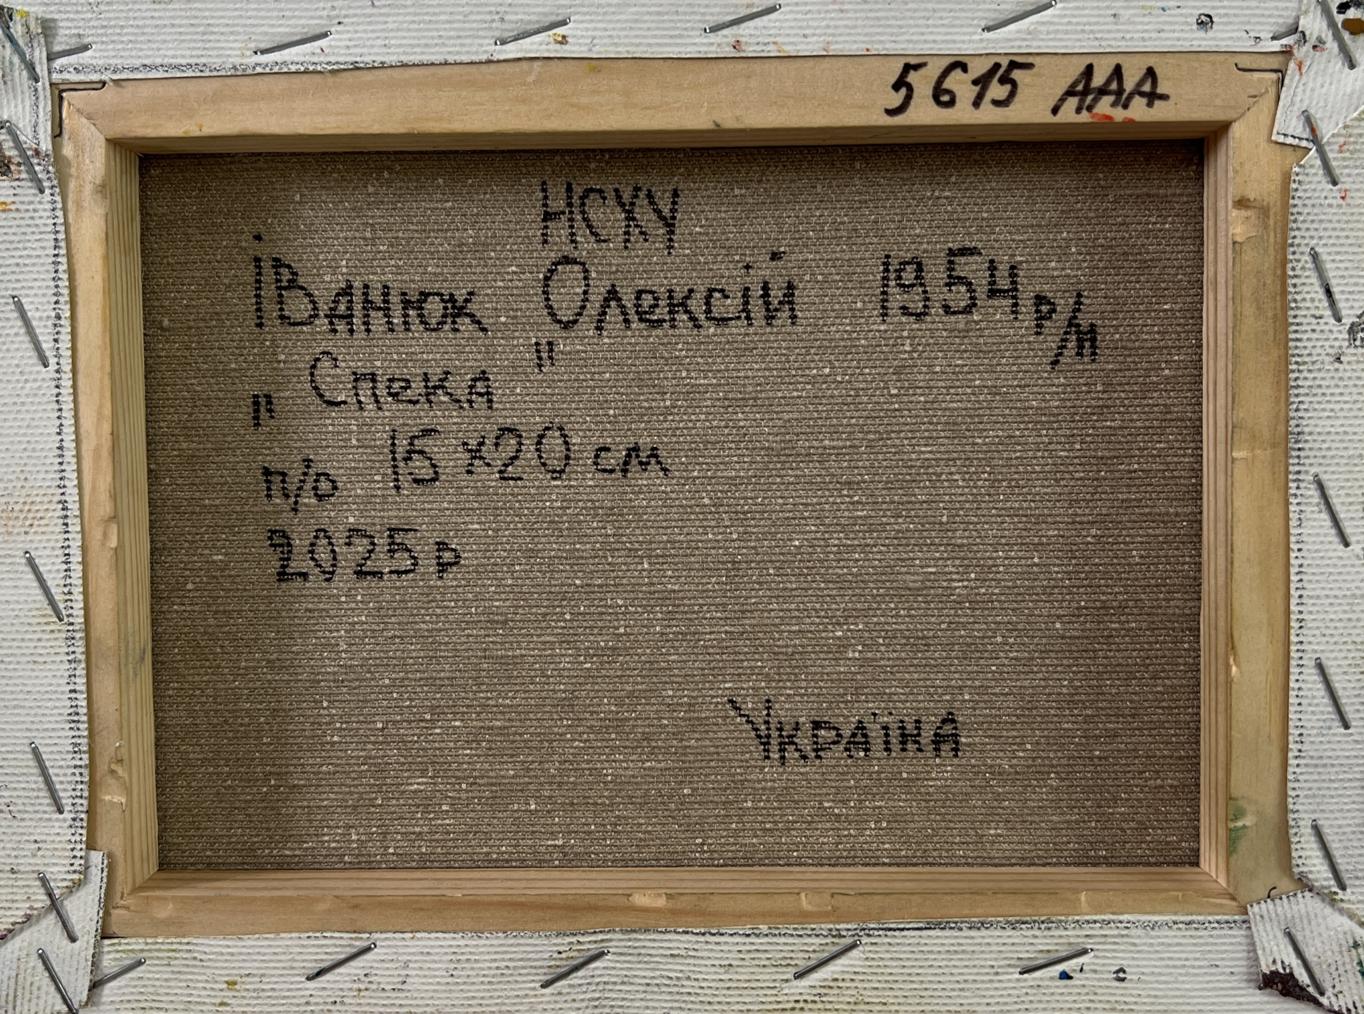 5615 AAA
НСХУ
Іванюк Олексій 1954 р/н
„Спека"
п/о 15×20 см
2025 р
Україна